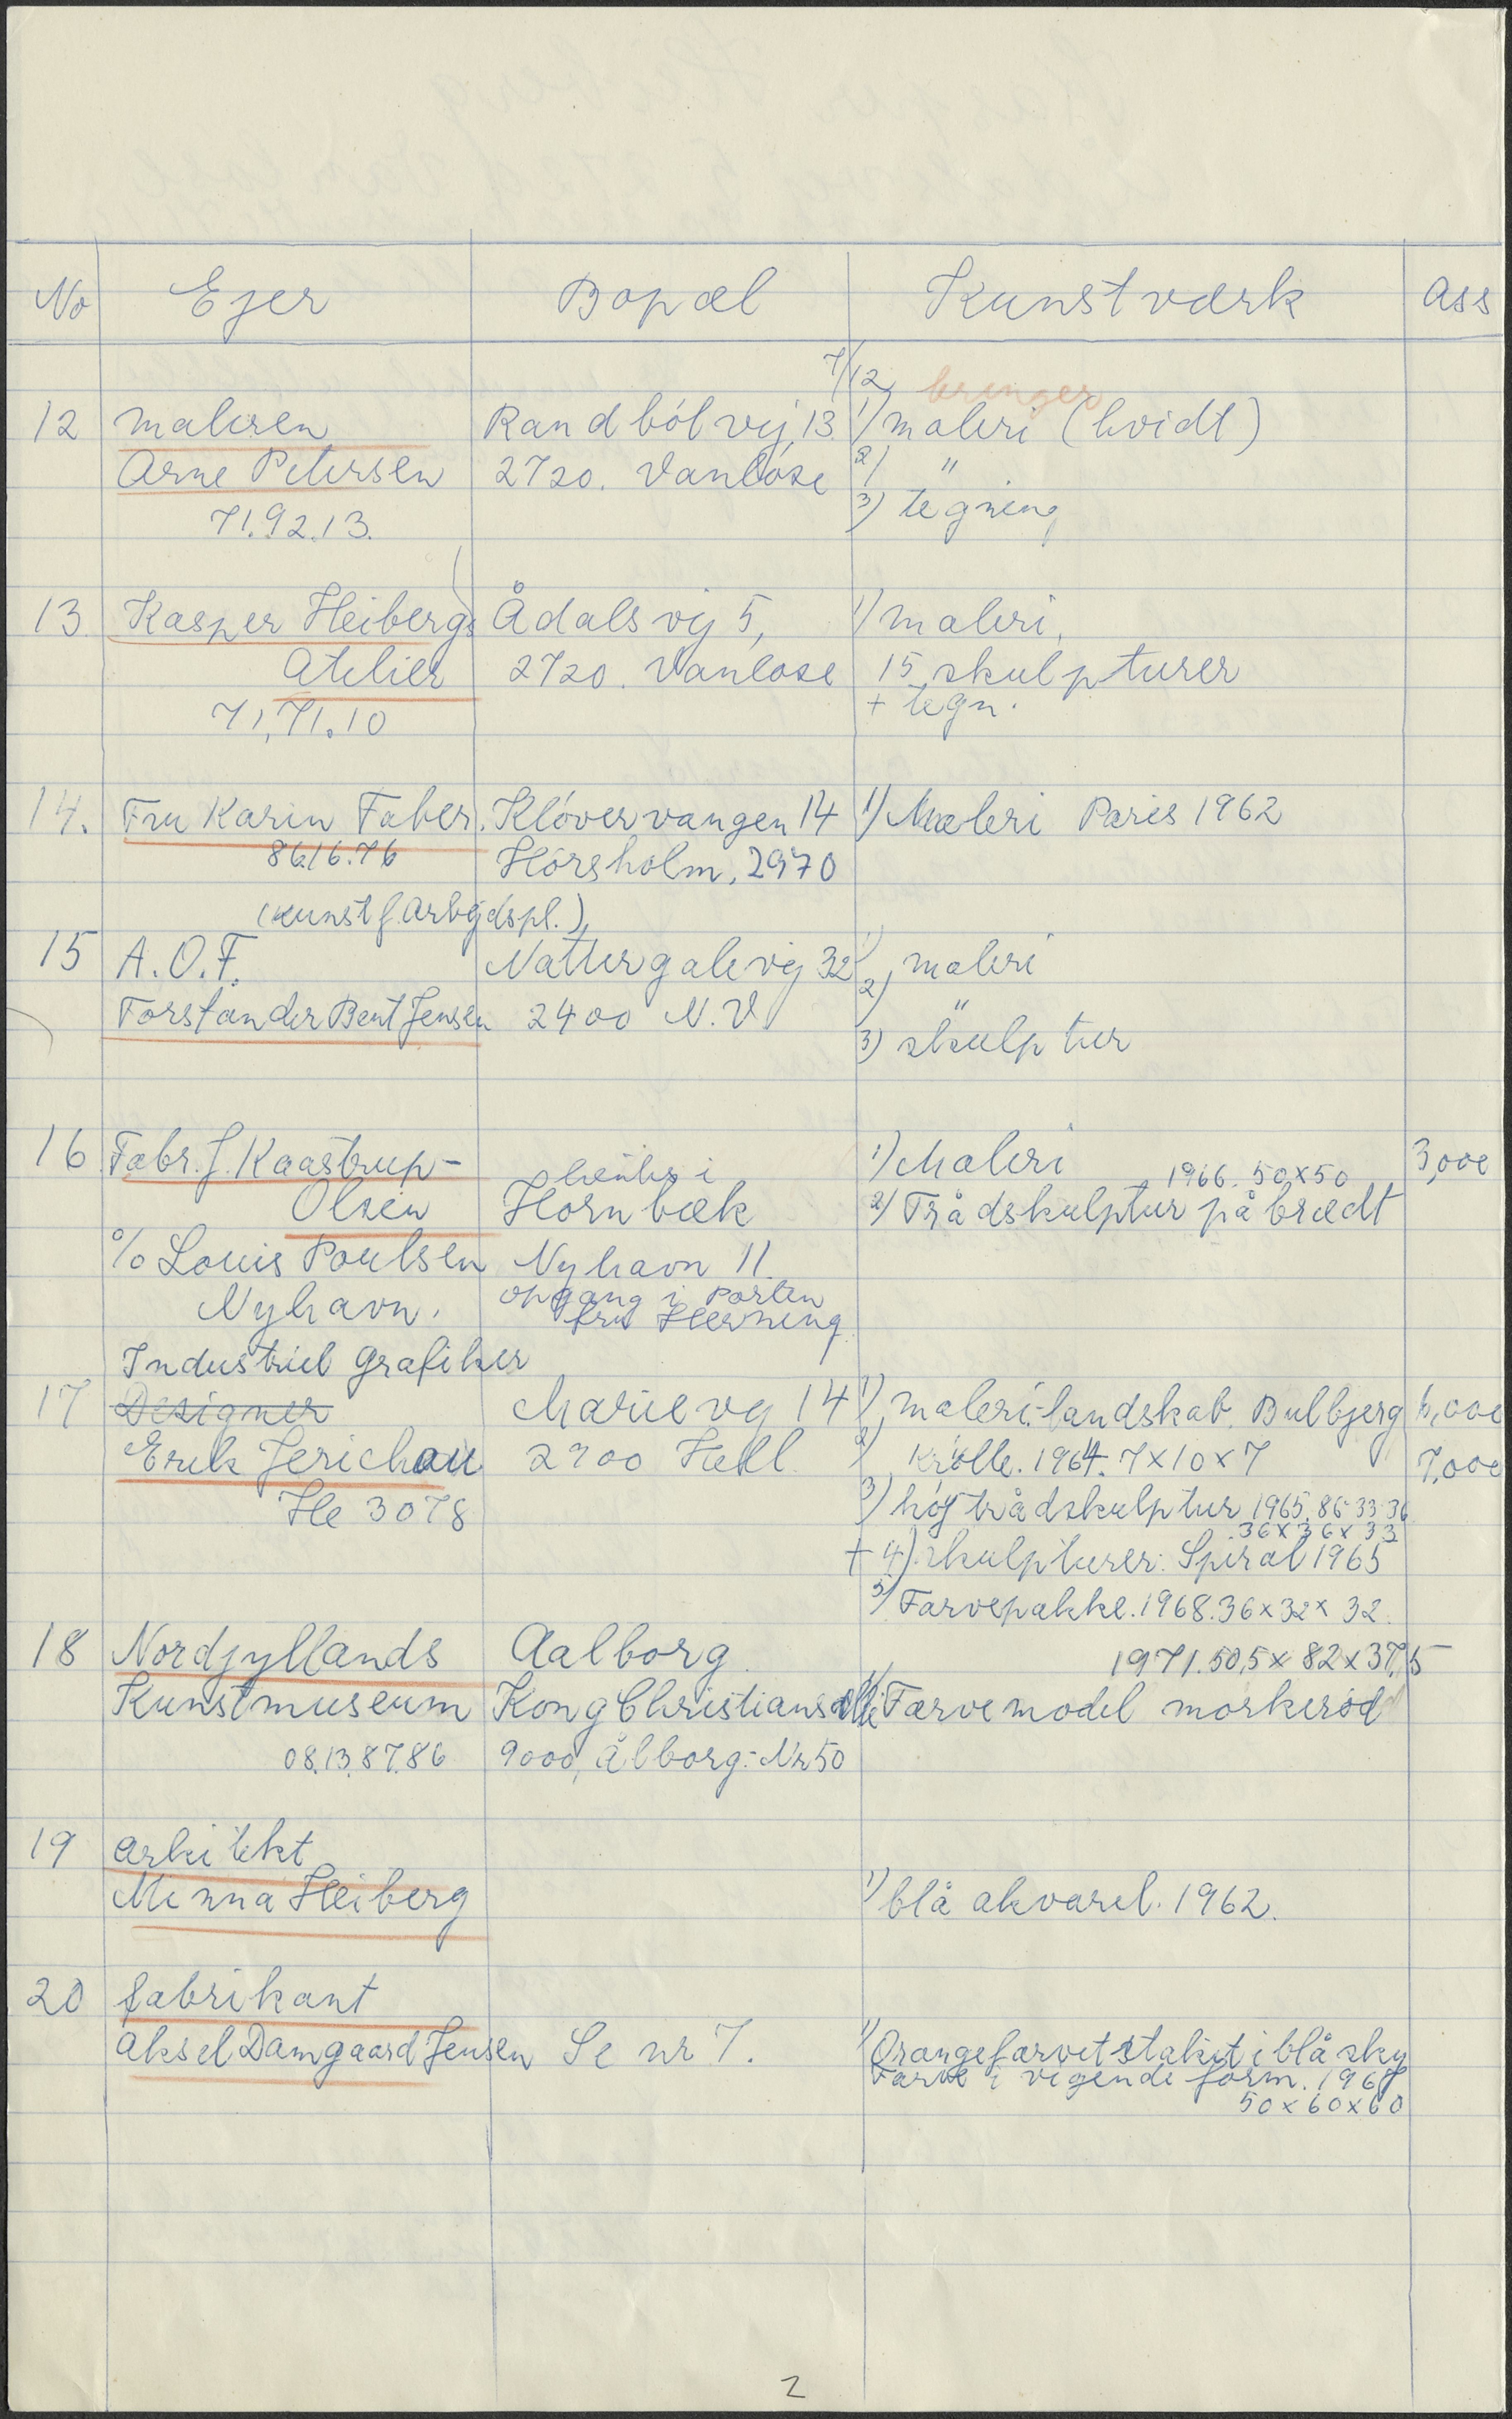 No Ejer Bopæl Kunstværk Ass
7/12 bringer
12 maleren Randbólvej 13 1) maleri (hvidt)
Arne Petersen 2720. Vanlóse 2) "
71.92.13. 3) tegning
13 Kasper Heibergs Ådalsvej 5, 1) maleri,
Atelier 2720. Vanlose 15 skulpturer
71,71.10 + tegn.
14. Fru Karin Faber. Klóvervangen 14 1) Maleri Paris 1962
86.16.76 Hórsholm, 2970
(kunst f. arbejdspl.)
15 A.O.F. Nattergalevej 32 1) maleri
Forstander Bent Jensen 2400 N.V 2) "
3) skulptur
16 Fabr. J. Kaastrup- 1) Maleri 3,000
Olsen hentes i Hornbæk 1966. 50x50
2) Trådskulptur på brædt
% Louis Poulsen Nyhavn 11.
Nyhavn. opgang i Porten
fru Herning
Industriel Grafiker
17 Designer Marievej 14 1) maleri-landskab. Bulbjerg 6,000
Erik Jerichau 2900 Hell. 2) Królle. 1964. 7x10x7 7,000
He 3078 3) hój trådskulptur 1965. 86-33-36
36x36x33
+ 4) skulpturer: Spiral 1965
5) Farvepakke. 1968. 36x32x32.
18 Nordjyllands Aalborg 1971. 50,5x82x37,5
Kunstmuseum Kong Christians Alle 1) Farvemodel morkeród
08.13.87.86 9000, Ålborg.- Nr 50
19 arkitekt
Minna Heiberg 1) blå akvarel. 1962.
20 fabrikant
Aksel Damgaard Jensen Se nr 7. 1) Orangefarvet stakit i blå sky
Farve i vigende form. 1967
50x60x60
2